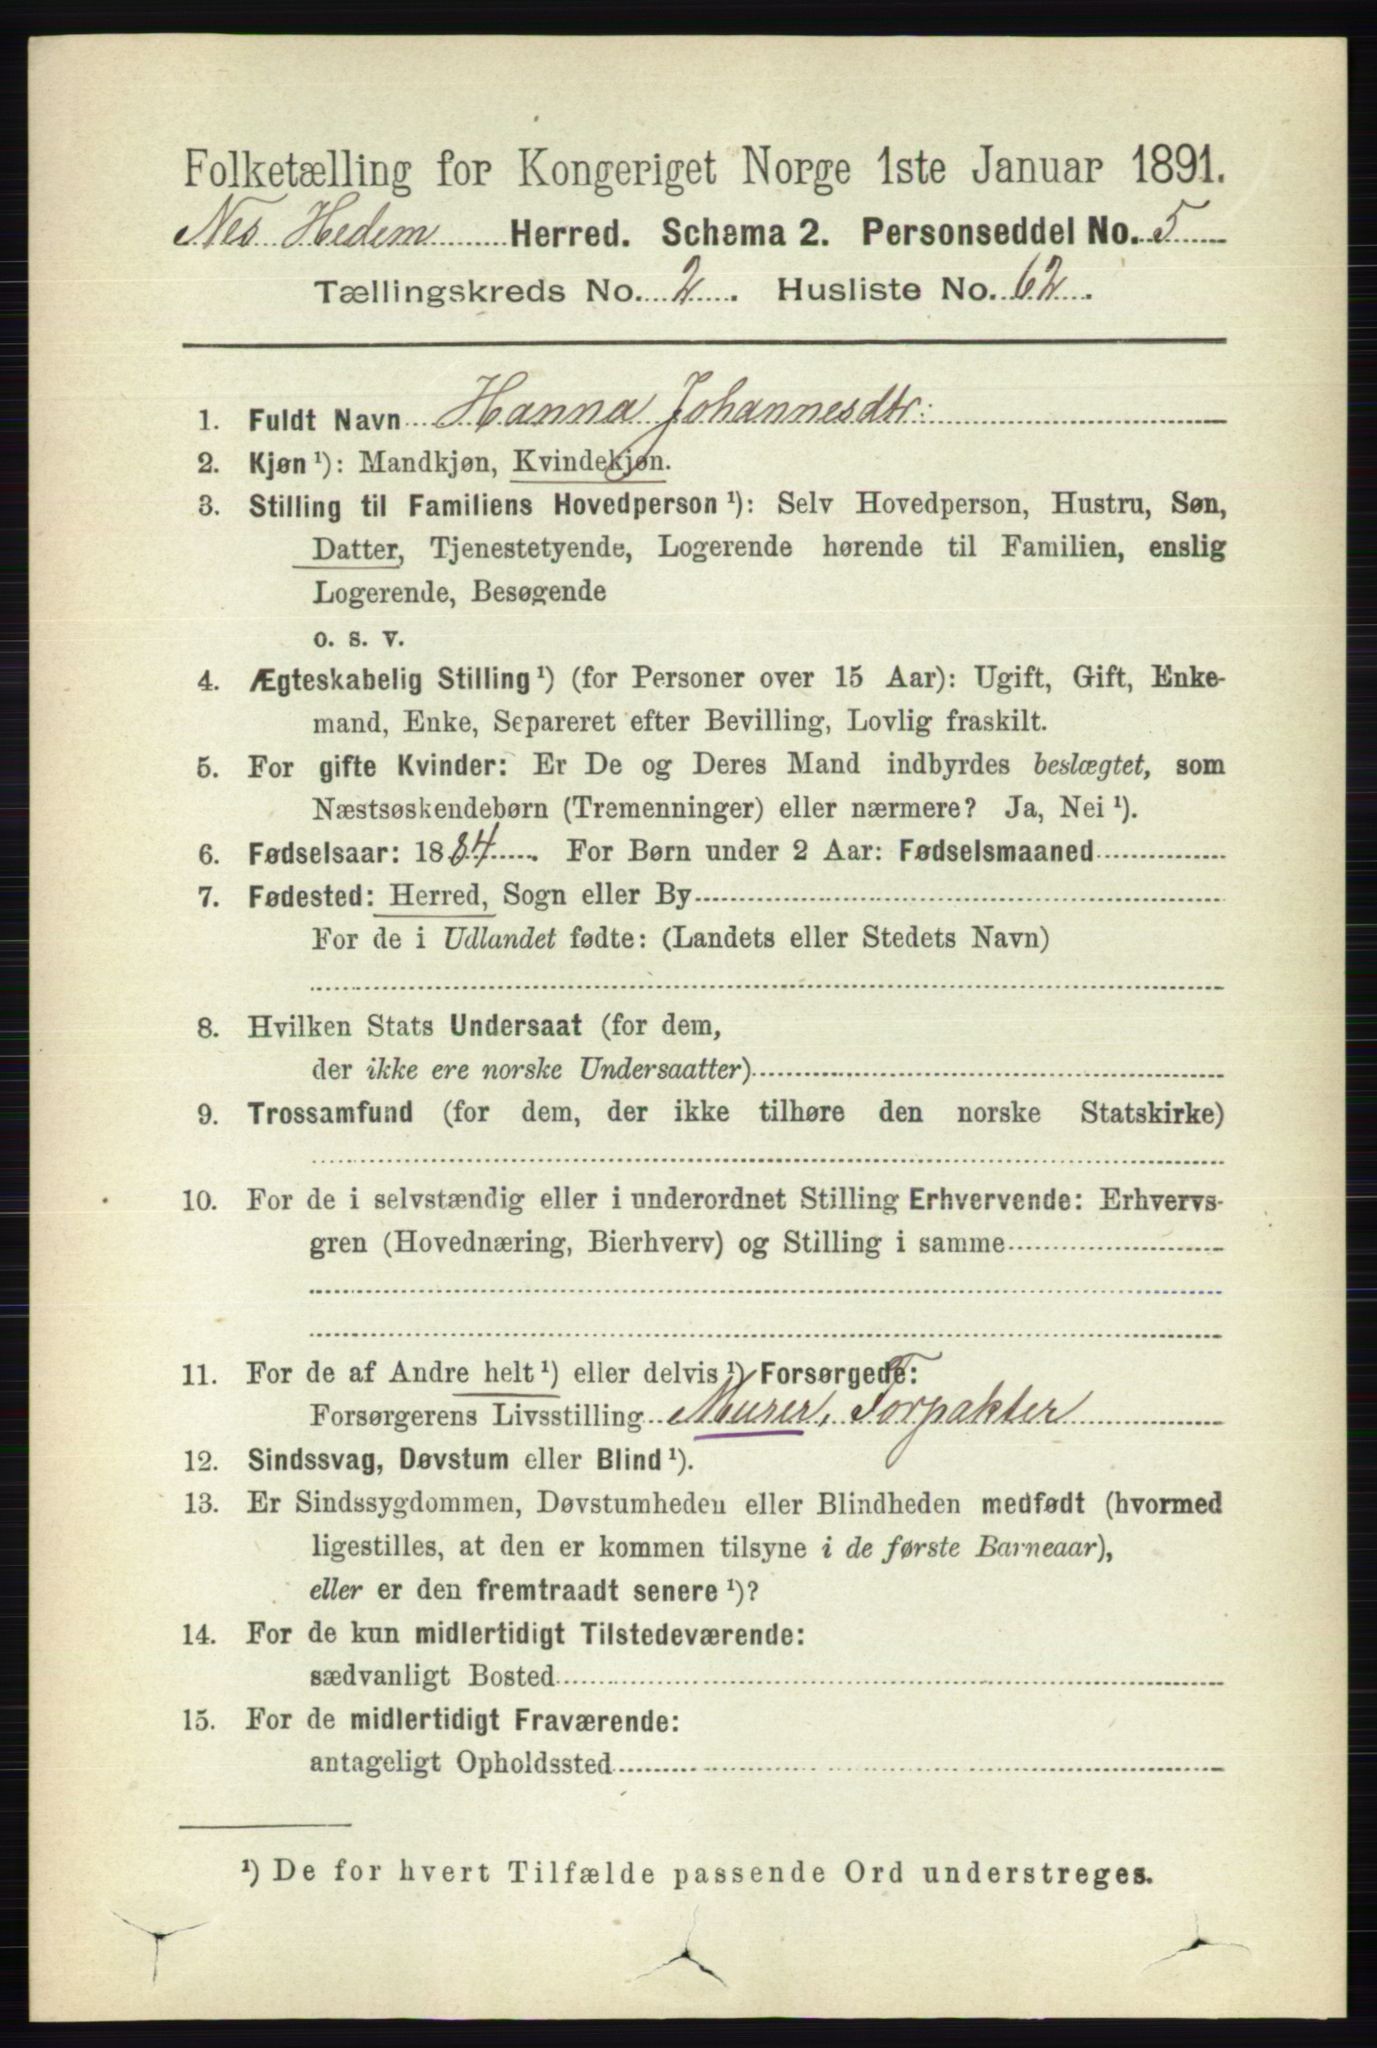 Folketælling for Kongeriget Norge 1ste Januar 1891.
Nes Hedem Herred. Schema 2. Personseddel No. 5
Tællingskreds No. 2. Husliste No. 62.
1. Fuldt Navn Hanna Johannesdtr:
2. Kjøn ¹): Mandkjøn, Kvindekjøn.
3. Stilling til Familiens Hovedperson ¹): Selv Hovedperson, Hustru, Søn,
Datter, Tjenestetyende, Logerende hørende til Familien, enslig
Logerende, Besøgende
o. s. v.
4. Ægteskabelig Stilling ¹) (for Personer over 15 Aar): Ugift, Gift, Enke-
mand, Enke, Separeret efter Bevilling, Lovlig fraskilt.
5. For gifte Kvinder: Er De og Deres Mand indbyrdes beslægtet, som
Næstsøskendebørn (Tremenninger) eller nærmere? Ja, Nei ¹).
6. Fødselsaar: 1884. For Børn under 2 Aar: Fødselsmaaned
7. Fødested: Herred, Sogn eller By
For de i Udlandet fødte: (Landets eller Stedets Navn)
8. Hvilken Stats Undersaat (for dem,
der ikke ere norske Undersaatter)
9. Trossamfund (for dem, der ikke tilhøre den norske Statskirke)
10. For de i selvstændig eller i underordnet Stilling Erhvervende: Erhvervs-
gren (Hovednæring, Bierhverv) og Stilling i samme
11. For de af Andre helt ¹) eller delvis ¹) Forsørgede:
Forsørgerens Livsstilling Murer, Forpakter
12. Sindssvag, Døvstum eller Blind ¹).
13. Er Sindssygdommen, Døvstumheden eller Blindheden medfødt (hvormed
ligestilles, at den er kommen tilsyne i de første Barneaar),
eller er den fremtraadt senere ¹)?
14. For de kun midlertidigt Tilstedeværende:
sædvanligt Bosted
15. For de midlertidigt Fraværende:
antageligt Opholdssted
¹) De for hvert Tilfælde passende Ord understreges.